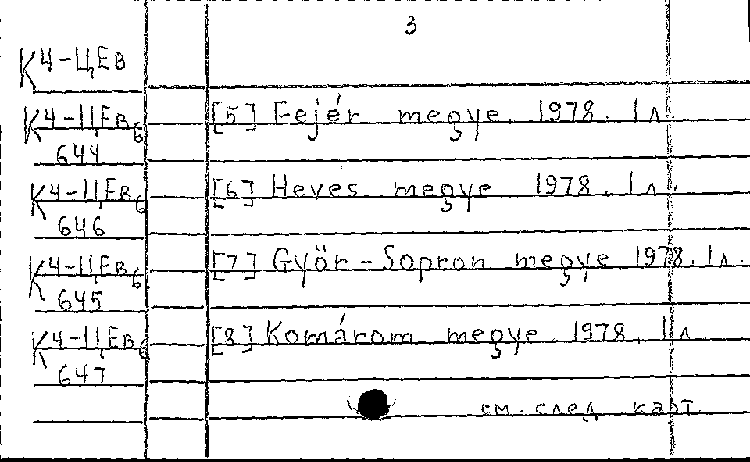 3
К4-ЦЕв
К4-ЦЕв6 [5] Fejér megye. 1978. 1л.
644
К4-ЦЕв6 [6] Heves megye 1978. 1л.
646
К4-ЦЕв6 [7] Györ-Sopron megye 1978. 1л.
645
К4-ЦЕв6 [8] Komárom megye 1978. 1л
647
см. след. карт.